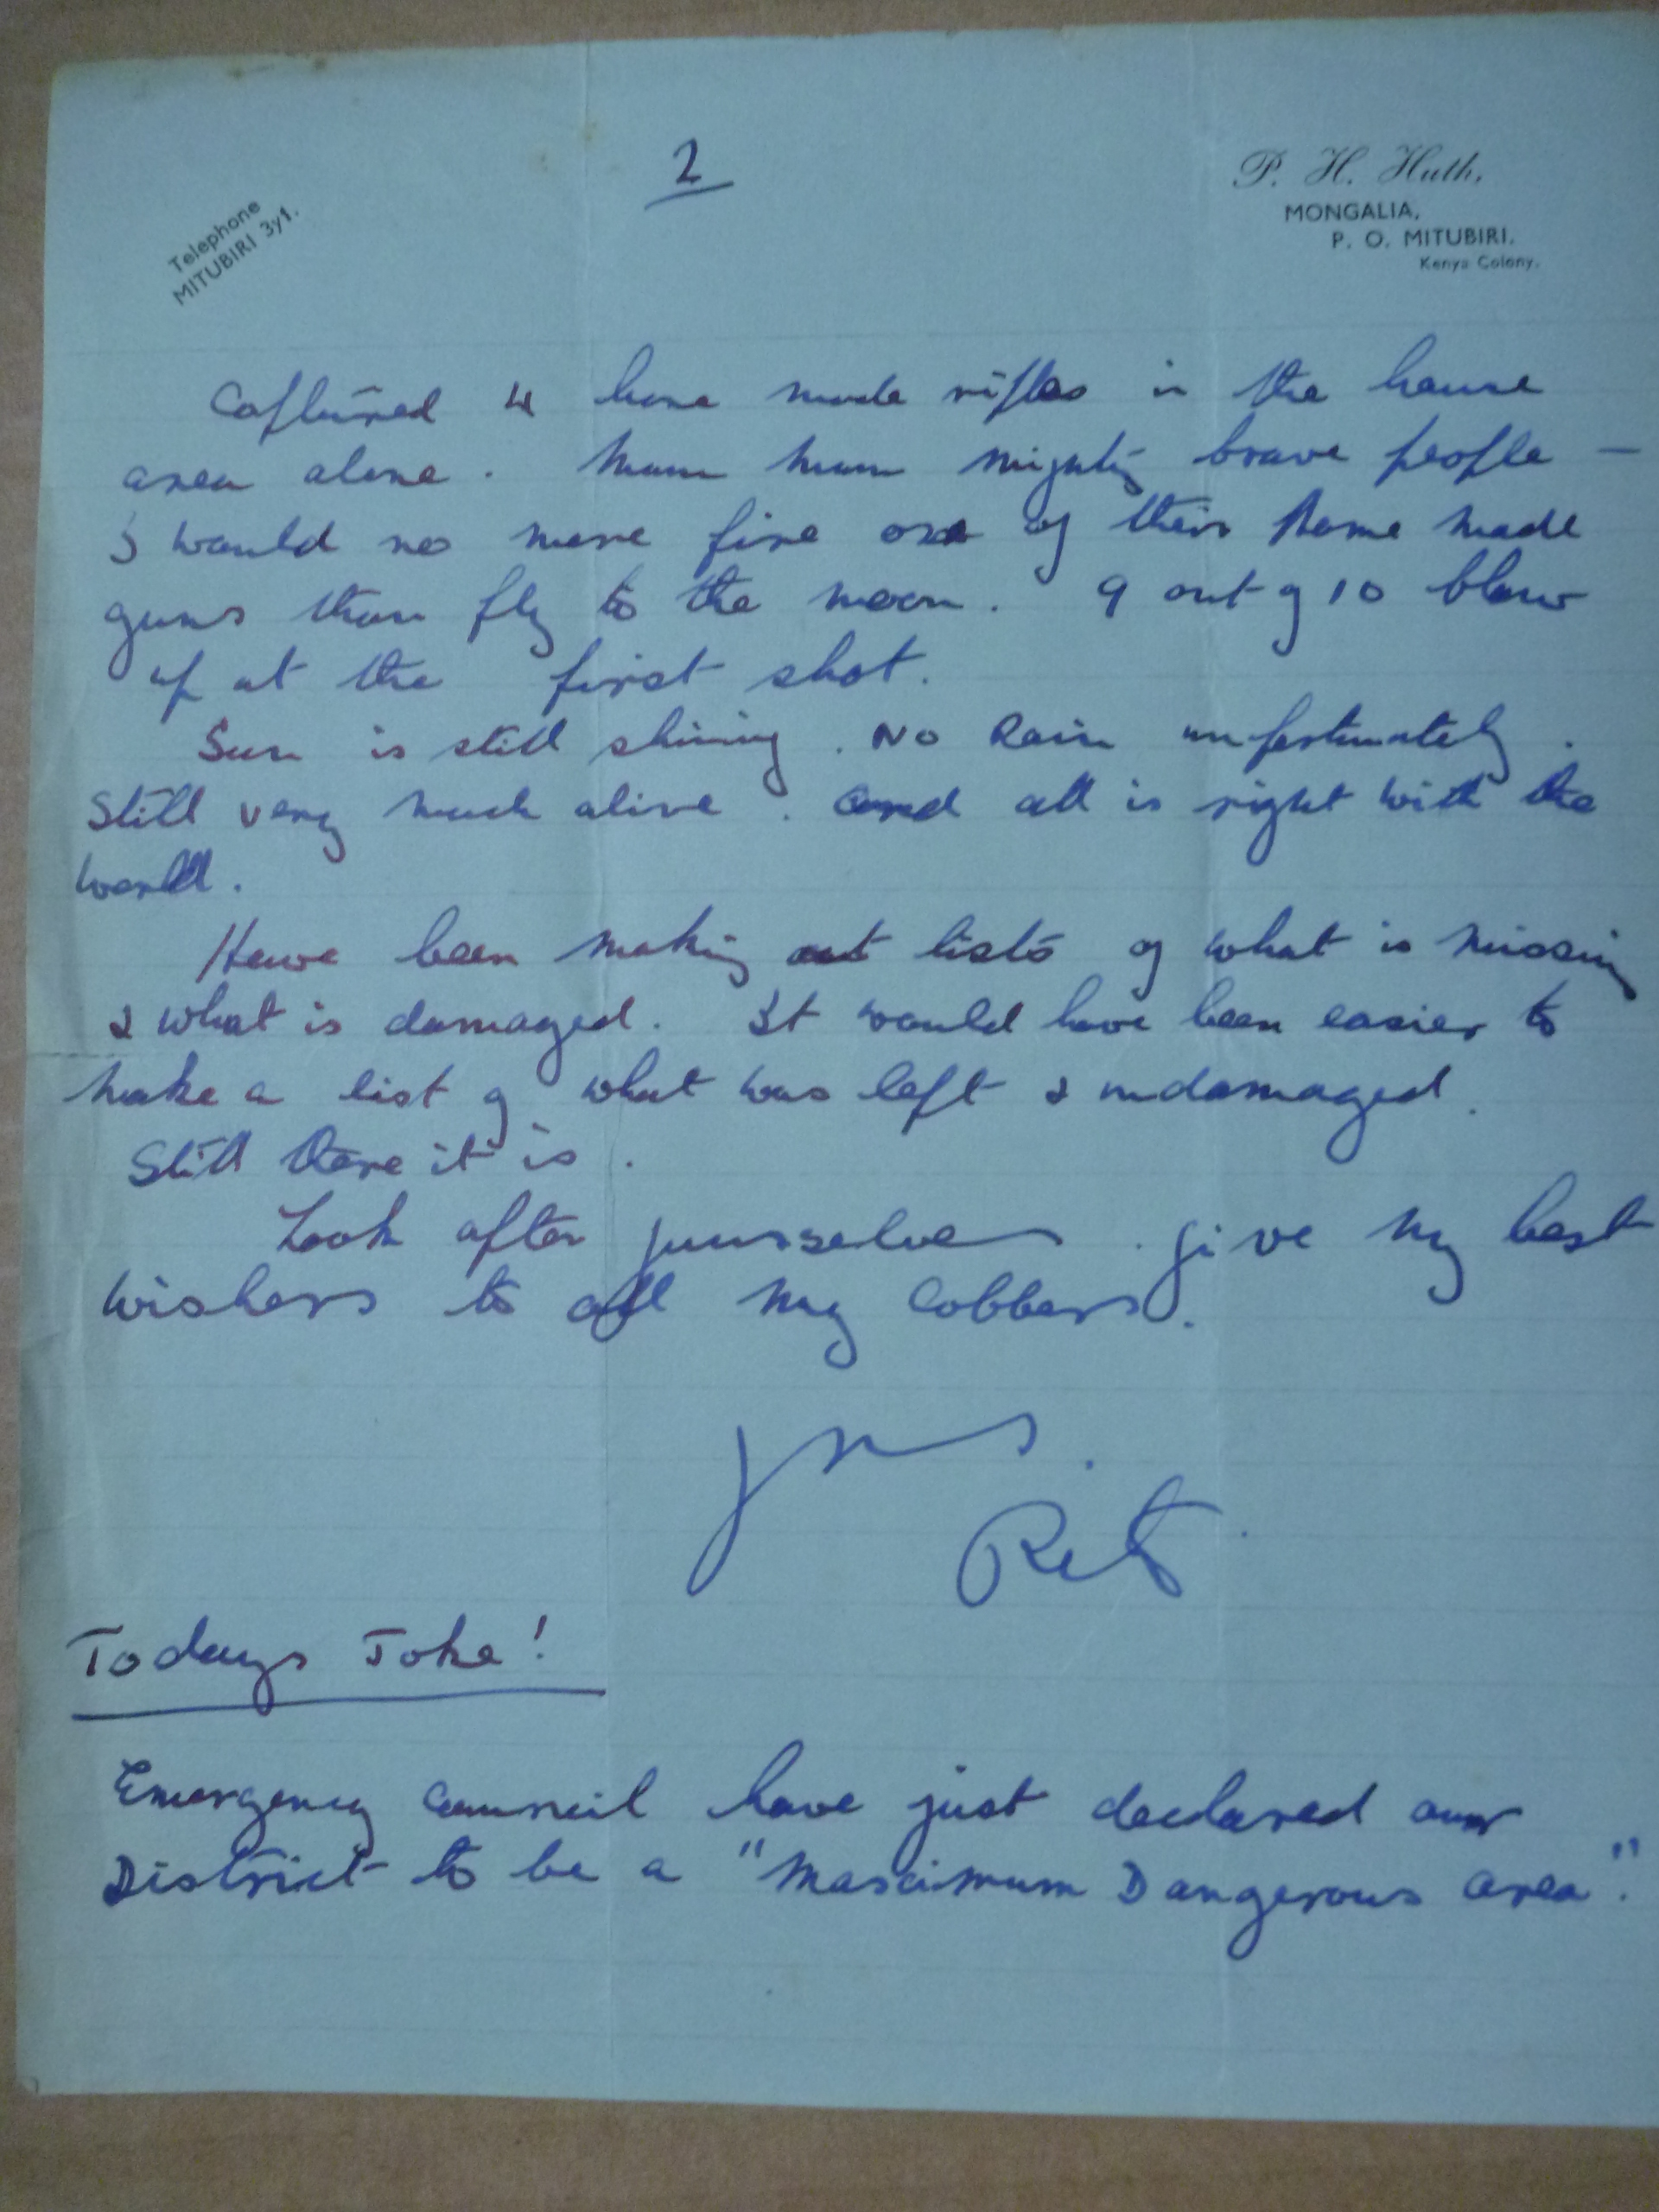 2
Telephone
MITUBIRI 3y1.
P. H. Huth,
MONGALIA,
P. O. MITUBIRI.
Kenya Colony.
Captured 4 home made rifles in the house
area alone. Mau Mau mighty brave people —
I would no more fire one of their home made
guns than fly to the moon. 9 out of 10 blow
up at the first shot.
Sun is still shining. No Rain unfortunately.
Still very much alive. and all is right with the
world.
Have been making out lists of what is missing
& what is damaged. It would have been easier to
make a list of what was left & undamaged.
Still there it is.
Look after yourselves. give my best
wishers to all my cobbers.
Yrs.
Todays Joke!
Emergency Council have just declared our
District to be a "Maximum Dangerous area".